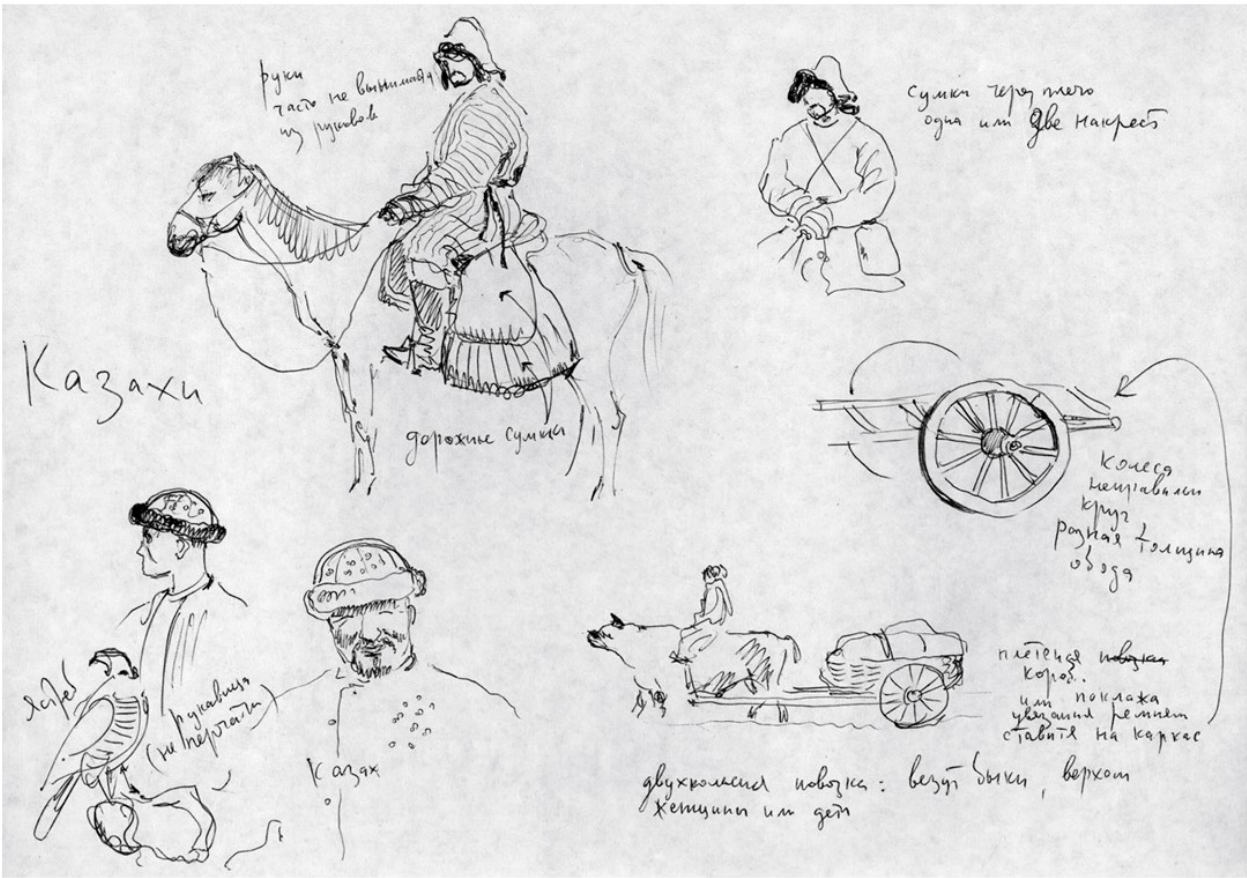 руки
часто не вынимая
из рукавов
сумки через плечо
одна или две накрест
Казахи
дорожные сумки
Колеса
неправильн
круг
разная толщина
обода
Ястреб
рукавица
(не перчатка)
Казах
плетеная повозка
короб..
или поклажа
увязаная ремнями
ставится на каркас
двухколесная повозка: везут быки, верхом
женщины или дети